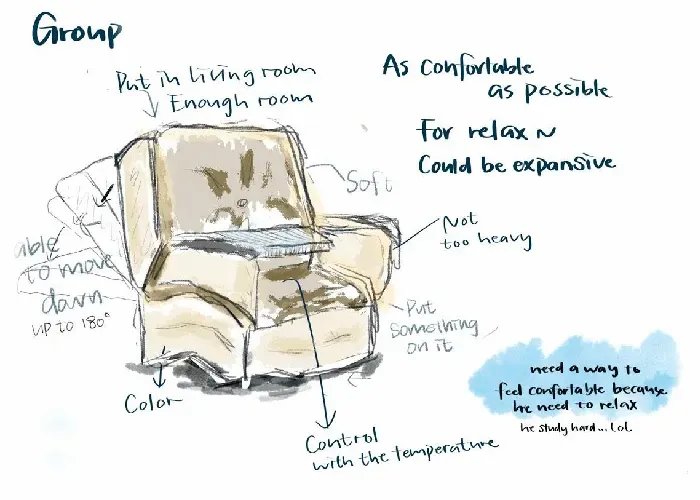 Group
Put in living room
Enough room
As confortable
as possible
For relax ~
Could be expansive
Soft
Not
too heavy
able
to move
down
up to 180°
Put
something
on it
Color
Control
with the temperature
need a way to
feel confortable because
he need to relax
he study hard... lol.